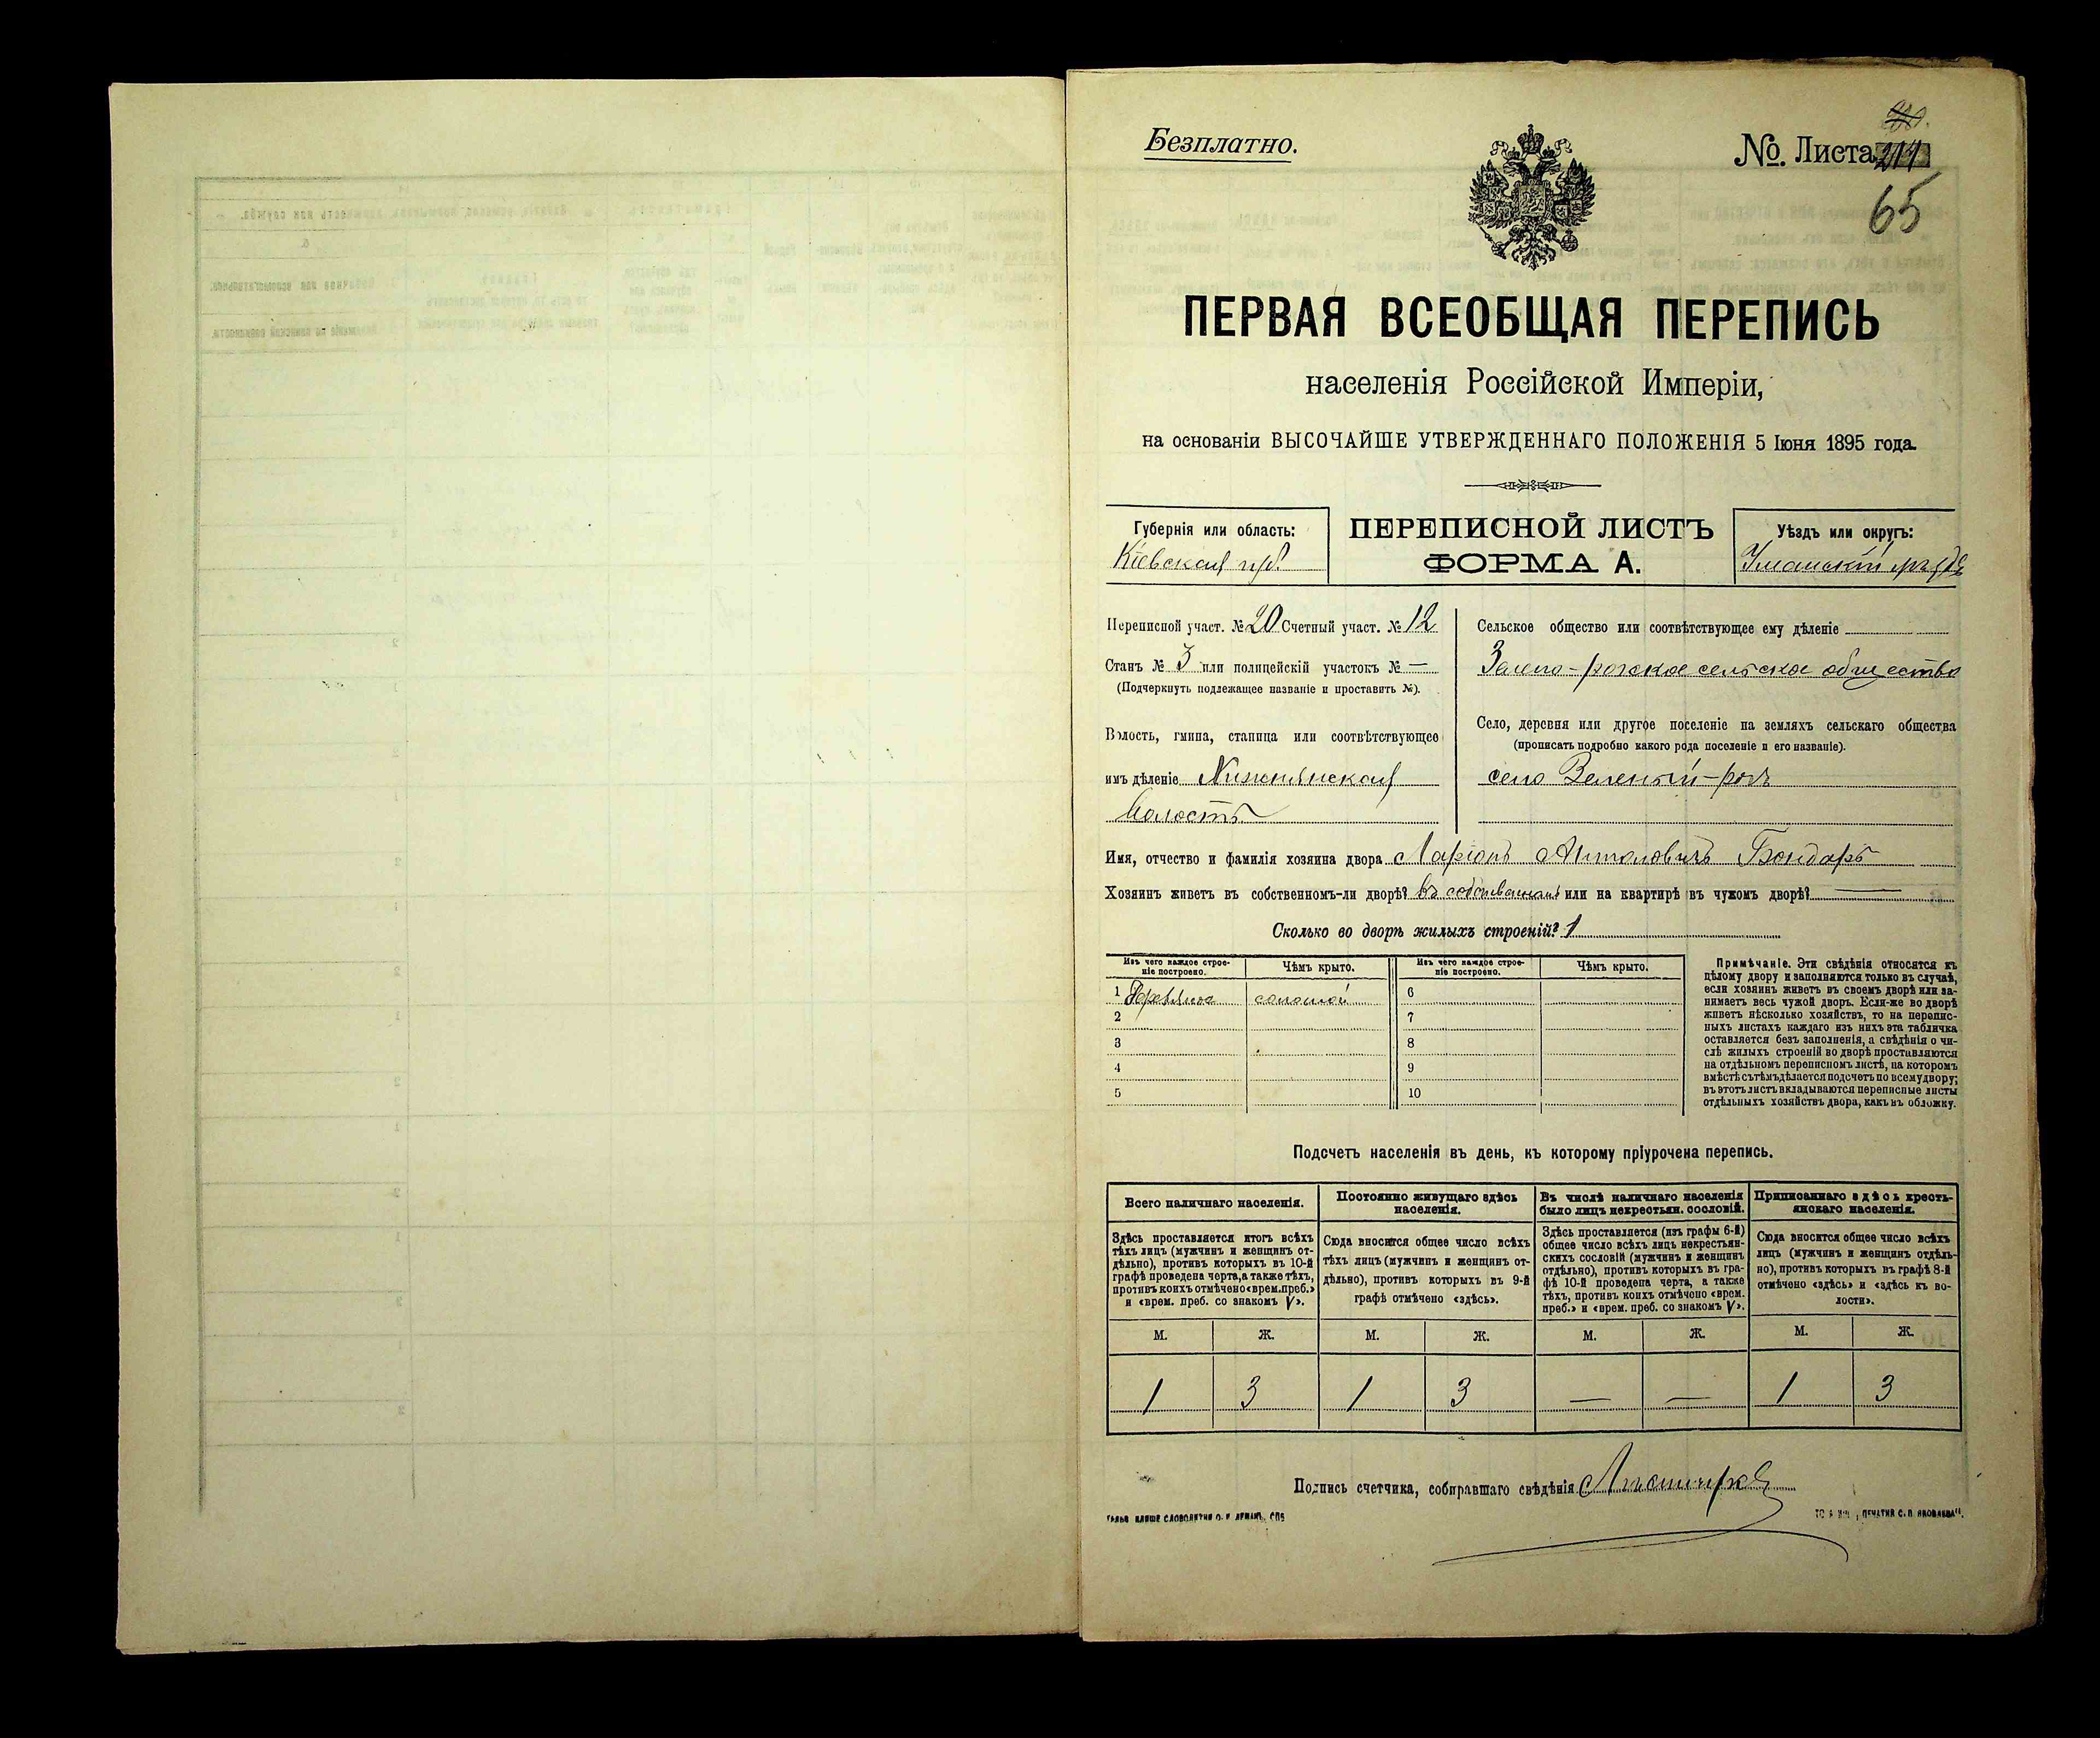 Безплатно.
№ Листа 211
65
ПЕРВАЯ ВСЕОБЩАЯ ПЕРЕПИСЬ
населенія Россійской Имперіи,
на основаніи ВЫСОЧАЙШЕ УТВЕРЖДЕННАГО ПОЛОЖЕНІЯ 5 Іюня 1895 года.
Губернія или область:
Кіевская губ.
ПЕРЕПИСНОЙ ЛИСТЪ
ФОРМА А.
Уѣздъ или округъ:
Уманскій уѣздъ
Переписной участ. № 20 Счетный участ. № 12
Станъ № 3 или полицейскій участокъ № —
(Подчеркнуть подлежащее названіе и проставить №).
Волость, гмина, станица или соотвѣтствующее
имъ дѣленіе
волость
Сельское общество или соотвѣтствующее ему дѣленіе
Зелено-рогское сельское общество
Село, деревня или другое поселеніе на земляхъ сельскаго общества
(прописать подробно какого рода поселеніе и его названіе).
село Зеленый-рогъ
Имя, отчество и фамилія хозяина двора Ларіонъ Антоновичъ Бондарь
Хозяинъ живетъ въ собственномъ-ли дворѣ? въ собственномъ или на квартирѣ въ чужомъ дворѣ? —
Сколько во дворѣ жилыхъ строеній? 1
Изъ чего каждое строе-
ніе построено.
Чѣмъ крыто.
Изъ чего каждое строе-
ніе построено.
Чѣмъ крыто.
1 соломой 6
2 7
3 8
4 9
5 10
Примѣчаніе. Эти свѣдѣнія относятся къ
цѣлому двору и заполняются только въ случаѣ,
если хозяинъ живетъ въ своемъ дворѣ или за-
нимаетъ весь чужой дворъ. Если-же во дворѣ
живетъ нѣсколько хозяйствъ, то на перепис-
ныхъ листахъ каждаго изъ нихъ эта табличка
оставляется безъ заполненія, а свѣдѣнія о чи-
слѣ жилыхъ строеній во дворѣ проставляются
на отдѣльномъ переписномъ листѣ, на которомъ
вмѣстѣ съ тѣмъ дѣлается подсчетъ по всему двору;
въ этотъ листъ вкладываются переписные листы
отдѣльныхъ хозяйствъ двора, какъ въ обложку.
Подсчетъ населенія въ день, къ которому пріурочена перепись.
Всего наличнаго населенія.
Здѣсь проставляется итогъ всѣхъ
тѣхъ лицъ (мужчинъ и женщинъ от-
дѣльно), противъ которыхъ въ 10-й
графѣ проведена черта, а также тѣхъ,
противъ коихъ отмѣчено «врем. преб.»
и «врем. преб. со знакомъ V».
Постоянно живущаго здѣсь
населенія.
Сюда вносится общее число всѣхъ
тѣхъ лицъ (мужчинъ и женщинъ от-
дѣльно), противъ которыхъ въ 9-й
графѣ отмѣчено «здѣсь».
Въ числѣ наличнаго населенія
было лицъ некрестьян. сословій.
Здѣсь проставляется (изъ графы 6-й)
общее число всѣхъ лицъ некрестьян-
скихъ сословій (мужчинъ и женщинъ
отдѣльно), противъ которыхъ въ гра-
фѣ 10-й проведена черта, а также
тѣхъ, противъ коихъ отмѣчено «врем.
преб.» и «врем. преб. со знакомъ V».
Приписаннаго здѣсь кресть-
янскаго населенія.
Сюда вносится общее число всѣхъ
лицъ (мужчинъ и женщинъ отдѣль-
но), противъ которыхъ въ графѣ 8-й
отмѣчено «здѣсь» и «здѣсь къ во-
лости».
М. Ж. М. Ж. М. Ж. М. Ж.
1 3 1 3 — — 1 3
Подпись счетчика, собиравшаго свѣдѣнія